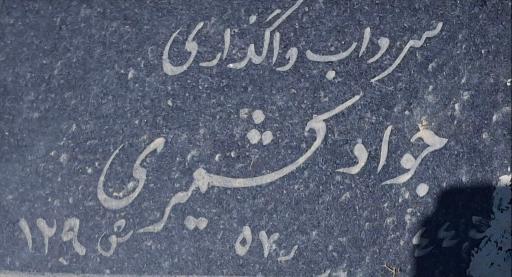 سرداب واگذاری
جواد کشمیری
ر ۵۷ ش ۱۲۹